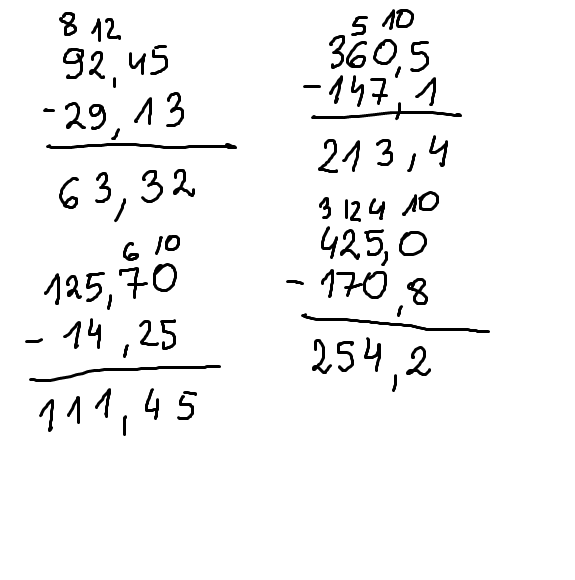 8 12
92,45
-29,13
63,32
5 10
360,5
-147,1
213,4
6 10
125,70
- 14,25
111,45
3 12 4 10
425,0
- 170,8
254,2